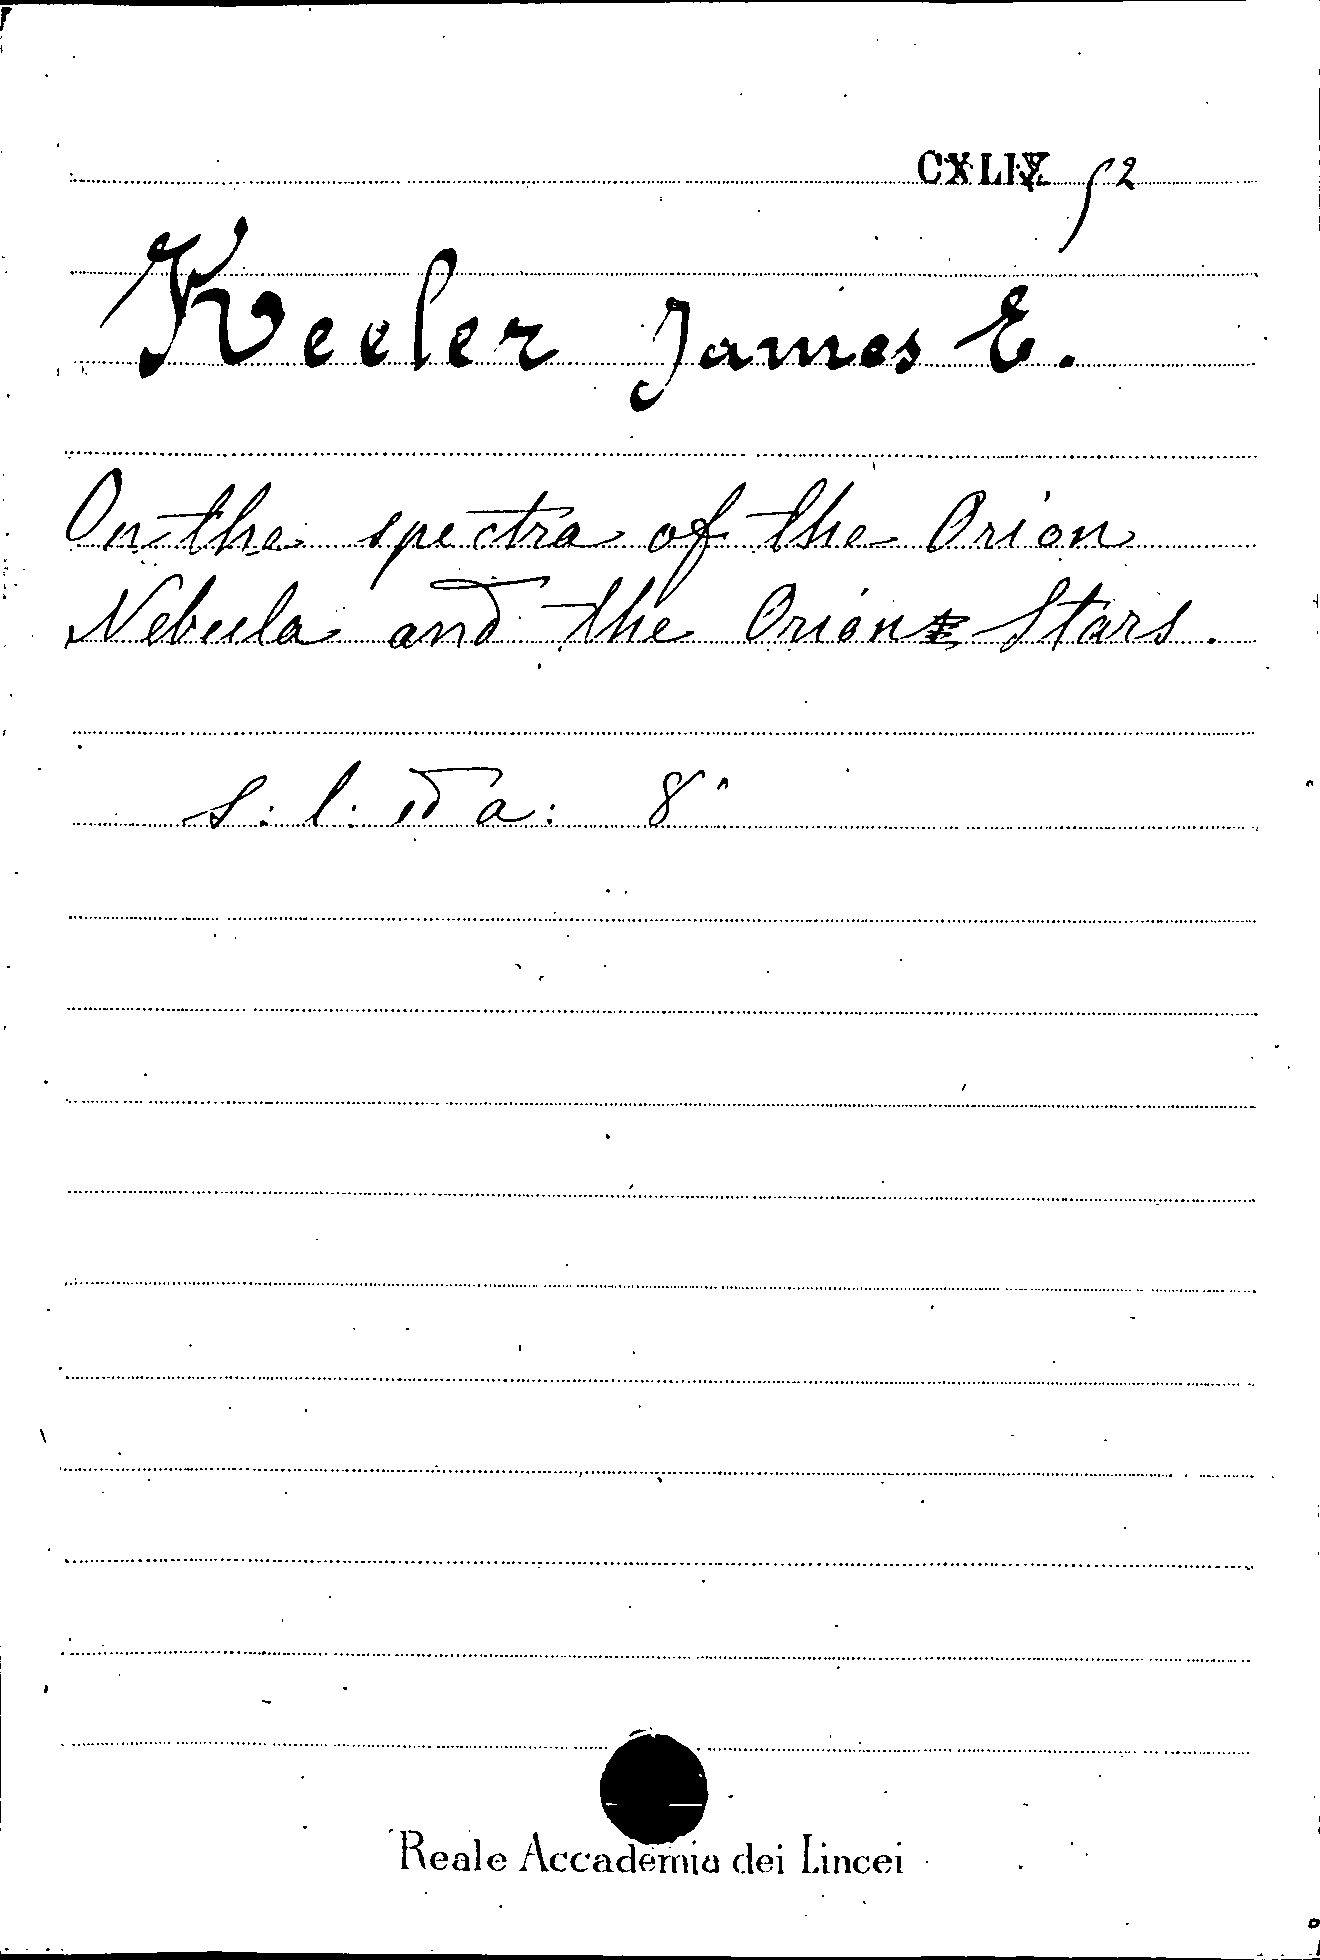 Keeler James E.
On the spectra of the Orion
Nebula and the Orion Stars.
s: l: ed a: 8°
Reale Accademia dei Lincei